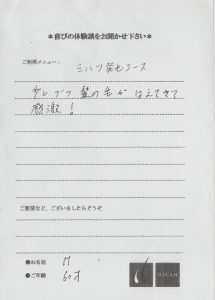 ＊喜びの体験談をお聞かせ下さい＊
ご利用メニュー：
ミツバツ育毛コース
少しづつ髪の毛がはえてきて
感激！
ご要望など、ございましたらどうぞ
●お名前 H
●ご年齢 60才